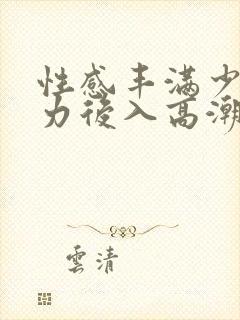 性感丰满少
力後入高潮
雲清